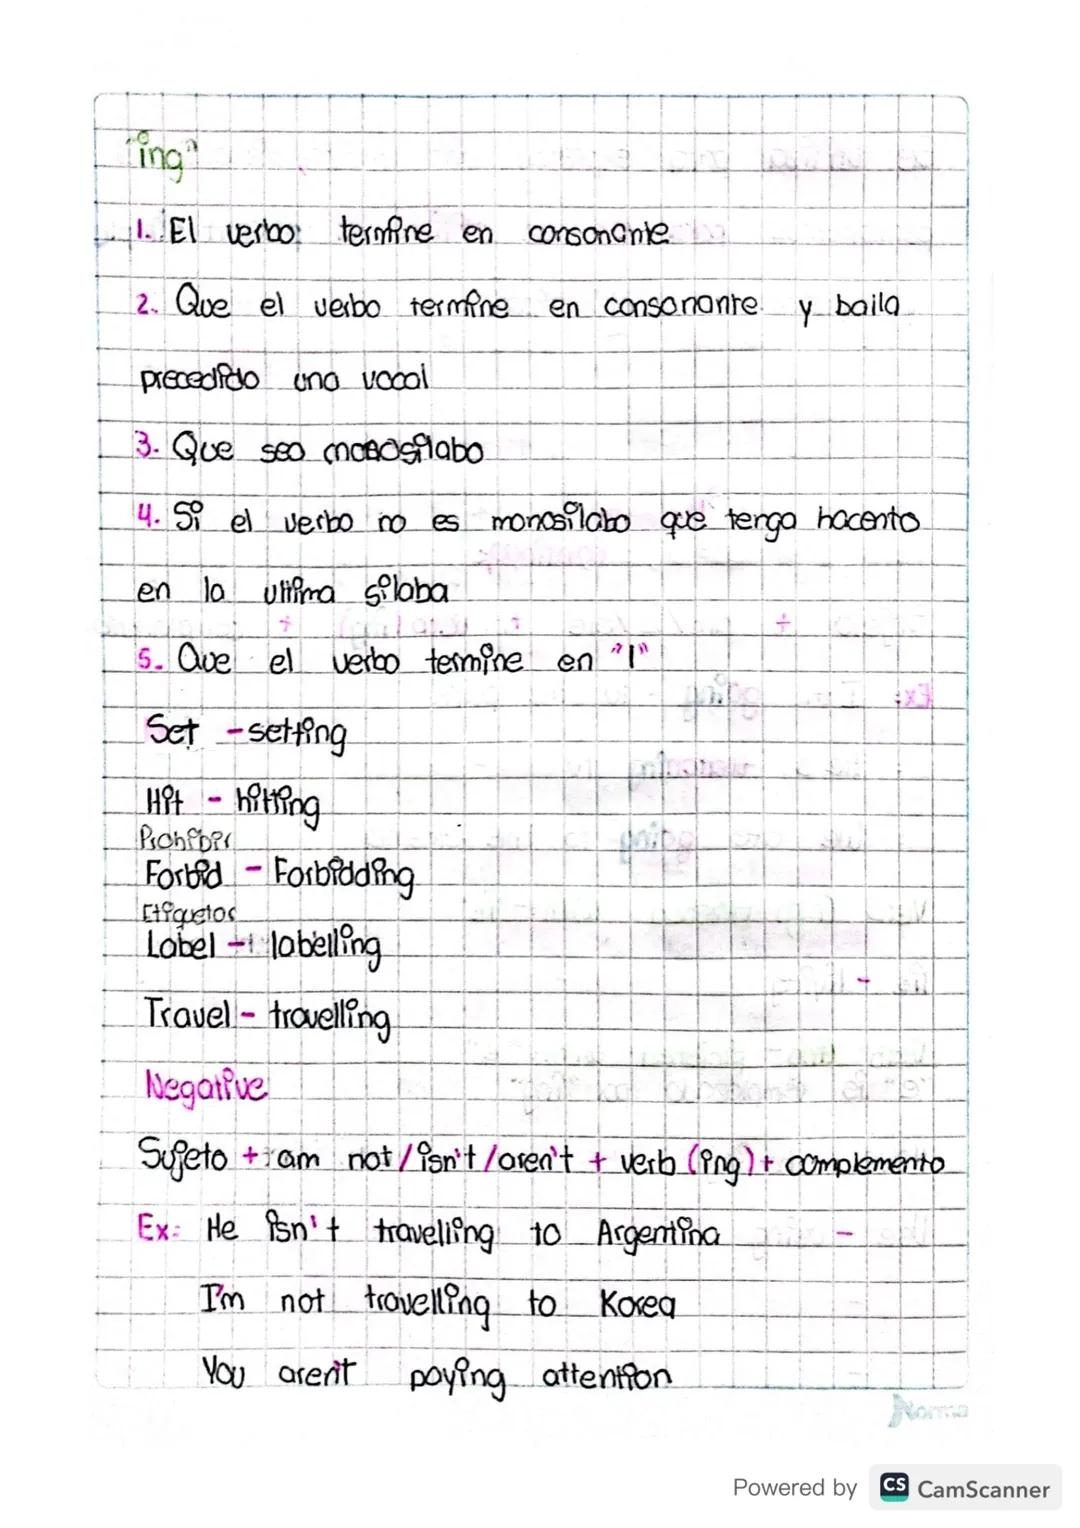 "ing"
1. El verbo termine en consonante
2. Que el verbo termine en consonante y baila
precedido una vocal
3. Que sea monosílabo
4. Si el verbo no es monosílabo que tenga hacento
en la ultima sílaba
5. Que el verbo termine en "l"
Set - setting
Hit - hitting
Prohibir
Forbid - Forbidding
Etiquetas
Label - labelling
Travel - travelling
Negative
Sujeto + am not / isn't / aren't + verb (ing) + complemento
Ex: He isn't travelling to Argentina
I'm not travelling to Korea
You aren't paying attention
Norma
Powered by CS CamScanner